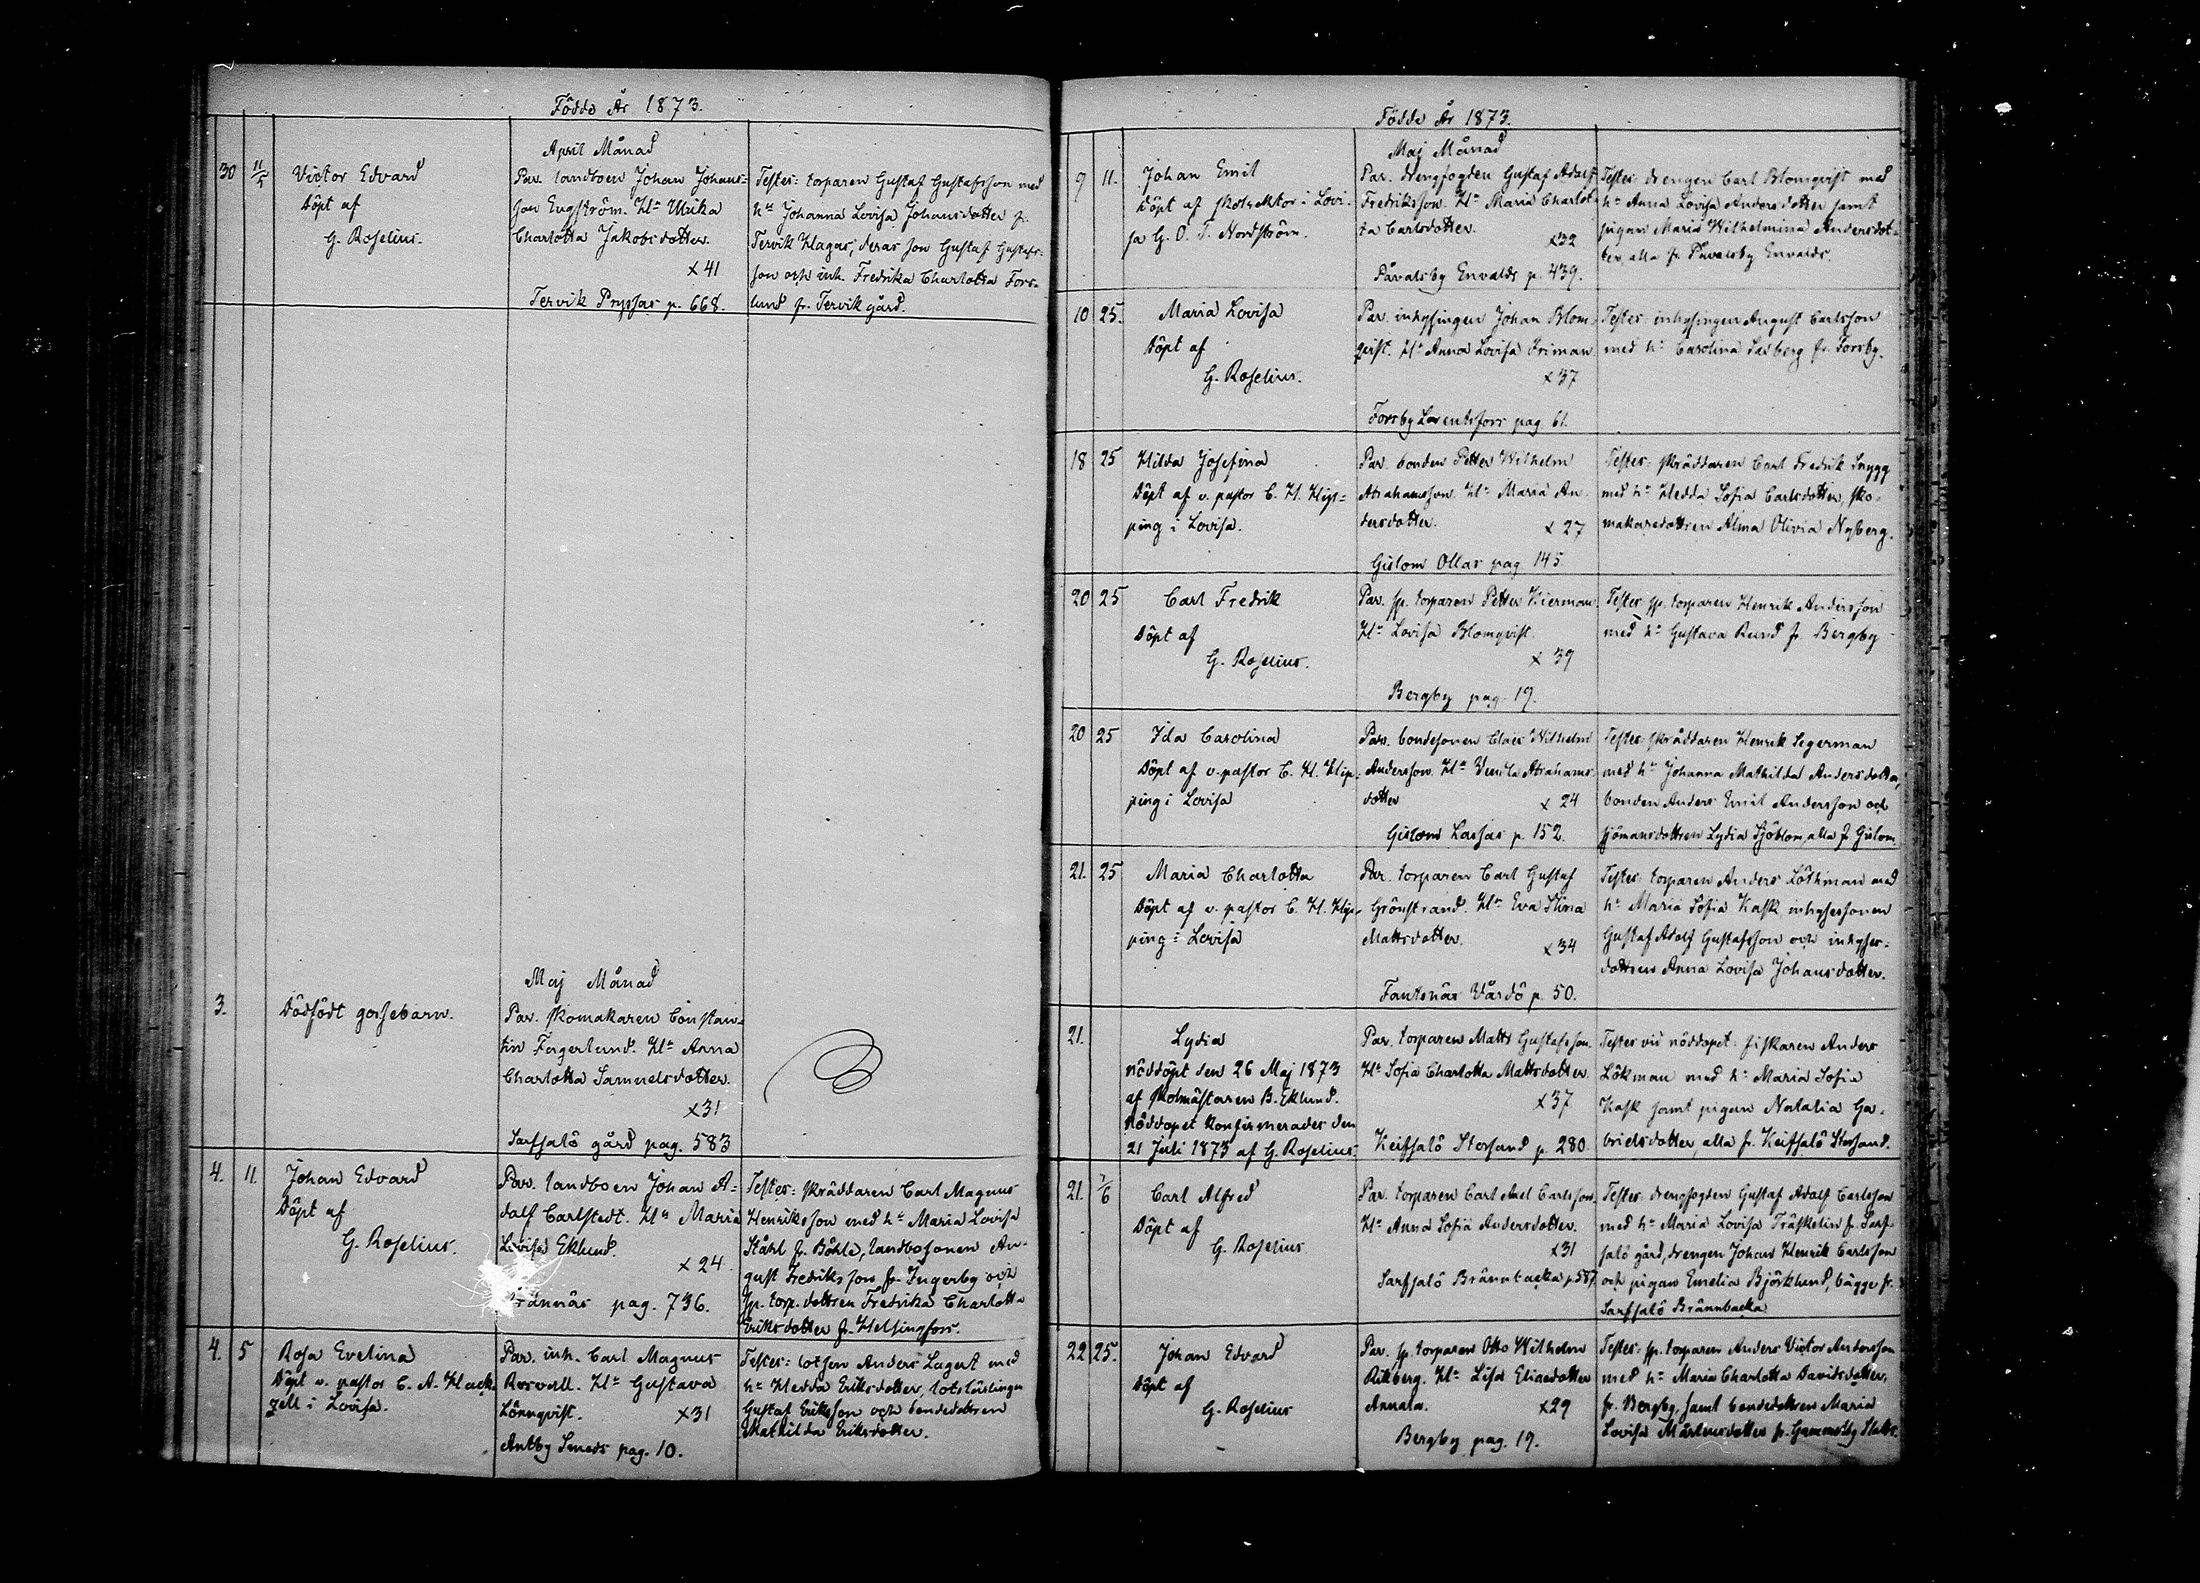 Födde År 1873.
April Månad
30 11/5 Victor Edvard
Döpt af
G. Roselius.
Par. landboen Johan Johans=
son Engström. H:u Ulrika
Charlotta Jakobsdotter.
x 41
Tervik Pryssas p. 668.
Testes: torparen Gustaf Gustafsson med
h:u Johanna Lovisa Johansdotter fr.
Tervik Hagas, deras son Gustaf Gustafs-
son och inh. Fredrika Charlotta Fors-
lund fr. Tervik gård.
Maj Månad
3. Dödfödt gossebarn.
Par. skomakaren Constan-
tin Fagerlund. H:u Anna
Charlotta Samuelsdotter.
x 31
Sarfsalö gård pag. 583
4. 11. Johan Edvard
Döpt af
G. Roselius.
Par. landboen Johan A=
dolf Carlstedt. H:u Maria
Lovisa Eklund.
x 24
pag. 736.
Testes: skräddaren Carl Magnus
Henriksson med h:u Maria Lovisa
Ståhl fr. Böhle, landbosonen Au-
gust Fredriksson fr. Ingerby och
sp. torp. dottren Fredrika Charlotta
Eriksdotter fr. Helsingfors.
4. 5 Rosa Evelina
Döpt v. pastor C. A. Hack-
zell i Lovisa.
Par. inh. Carl Magnus
Rosvall. H:u Gustava
Lönnqvist. x 31
Antby Smeds pag. 10.
Testes: lotsen Anders Lagert med
h:u Hedda Eriksdotter, lotslärlingen
Gustaf Eriksson och bondedottren
Mathilda Eriksdotter.
Födde År 1873.
Maj Månad
9 11. Johan Emil
Döpt af skolrektor i Lovi-
sa G. O. T. Nordström.
Par. drengfogden Gustaf Adolf
Fredriksson. H:u Maria Charlot-
ta Carlsdotter.
x 32
Påvalsby Envalds p. 439.
Testes: drengen Carl Blomqvist med
h:u Anna Lovisa Andersdotter samt
pigan Maria Wilhelmina Andersdot-
ter, alla fr. Påvalsby Envalds.
10 25. Maria Lovisa
Döpt af
G. Roselius.
Par. inhysingen Johan Blom-
qvist. H:u Anna Lovisa Friman
x 37
Forsby Larentsfors pag 61.
Testes: inhysingen August Carlsson
med h:u Carolina Salberg fr. Forsby.
18 25 Hilda Josefina
Döpt af v. pastor C. H. Klip=
ping i Lovisa.
Par. bonden Petter Wilhelm
Abrahamsson. H:u Maria An-
dersdotter. x 27
Gislom Ollas pag 145
Testes: skräddaren Carl Fredrik Snygg
med h:u Hedda Sofia Carlsdotter, sko-
makaredottren Alma Olivia Nyberg.
20 25 Carl Fredrik
Döpt af
G. Roselius.
Par. sp. torparen Petter Kierman.
H:u Lovisa Blomqvist.
x 39
Bergby pag. 19.
Testes: sp. torparen Henrik Andersson
med h:u Gustava Rund fr. Bergby
20 25 Ida Carolina
Döpt af v. pastor C. H. Klip-
ping i Lovisa
Par. bondesonen Claes Wilhelm
Andersson. H:u Vendla Abrahams-
dotter x 24
Gislom Lassas p. 152.
Testes: skräddaren Henrik Segerman
med h:u Johanna Mathilda Andersdotter,
bonden Anders Emil Andersson och
sjömansdottren Lydia Sjöblom, alla fr. Gislom.
21. 25 Maria Charlotta
Döpt af v. pastor C. H. Klip-
ping i Lovisa
Par. torparen Carl Gustaf
Grönstrand. H:u Eva Stina
Mattsdotter. x 34
Fantsnäs Vårdö p. 50.
Testes: torparen Anders Löthman med
h:u Maria Sofia Kask, inhysessonen
Gustaf Adolf Gustafsson och inhyses=
dottren Anna Lovisa Johansdotter.
21. Lydia
nöddöpt den 26 Maj 1873
af skolmästaren B. Eklund.
Nöddopet konfirmerades den
21 Juli 1873 af G. Roselius.
Par. torparen Matts Gustafsson.
H:u Sofia Charlotta Mattsdotter.
x 37
Keifsalö Storsand p. 280.
Testes vid nöddopet: fiskaren Anders
Lökman med h:u Maria Sofia
Kask samt pigan Natalia Ga-
brielsdotter, alla fr. Keifsalö Storsand.
21. 7/6 Carl Alfred
Döpt af
G. Roselius
Par. torparen Carl Axel Carlsson,
H:u Anna Sofia Andersdotter.
x 31
Sarfsalö Brännbacka p. 587
Testes: drengfogden Gustaf Adolf Carlsson
med h:u Maria Lovisa Träskelin fr. Sarf-
salö gård, drengen Johan Henrik Carlsson
och pigan Emelia Björklund, bägge fr.
Sarfsalö Brännbacka
22. 25. Johan Edvard
Döpt af
G. Roselius
Par. sp. torparen Otto Wilhelm
Rikberg. H:u Lisa Eliaedotter
Annala. x 29
Bergby pag. 19.
Testes: sp. torparen Anders Victor Andersson
med h:u Maria Charlotta Davidsdotter,
fr. Bergby, samt bondedottren Maria
Lovisa Mårtensdotter fr. Gammelby Statts.